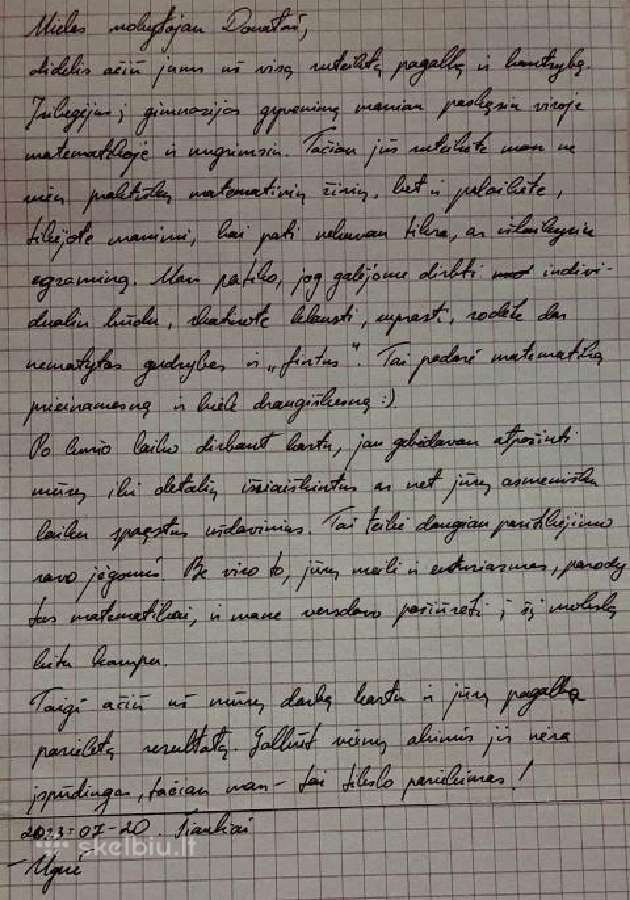 Mielas mokytojau Donatai,
didelis ačiū jums už visą suteiktą pagalbą ir kantrybę.
Įsibėgėjus į gimnazijos gyvenimą maniau pasiksiu visoje
matematikoje ir nugrimsiu. Tačiau jūs suteikėte man ne
vien praktiškų matematinių žinių, bet ir palaikėte,
tikėjote manimi, kai pati nebuvau tikra, ar išlaikysiu
egzaminą. Man patiko, jog galėjome dirbti indivi-
dualiu būdu, skatinote klausti, suprasti, rodėte dar
nematytas gudrybes ir „fintus". Tai padarė matematiką
prieinamesnę ir kiek draugiškesnę :)
Po kurio laiko dirbant kartu, jau gebėdavau atpažinti
mūsų iki detalių išsiaiškintus ar net jūsų asmenišku
laiku spręstus uždavinius. Tai teikė daugiau pasitikėjimo
savo jėgomis. Be viso to, jūsų meilė ir entuziazmas, parody-
tas matematikai, ir mane versdavo pažiūrėti į šį mokslą
kitu kampu.
Taigi ačiū už mūsų darbą kartu ir jūsų pagalbą
pasiektą rezultatą. Galbūt vienų akimis jis nėra
įspūdingas, tačiau man - tai tikslo pasiekimas!
2023-07-20. Šiauliai
Ugnė
skelbiu.lt